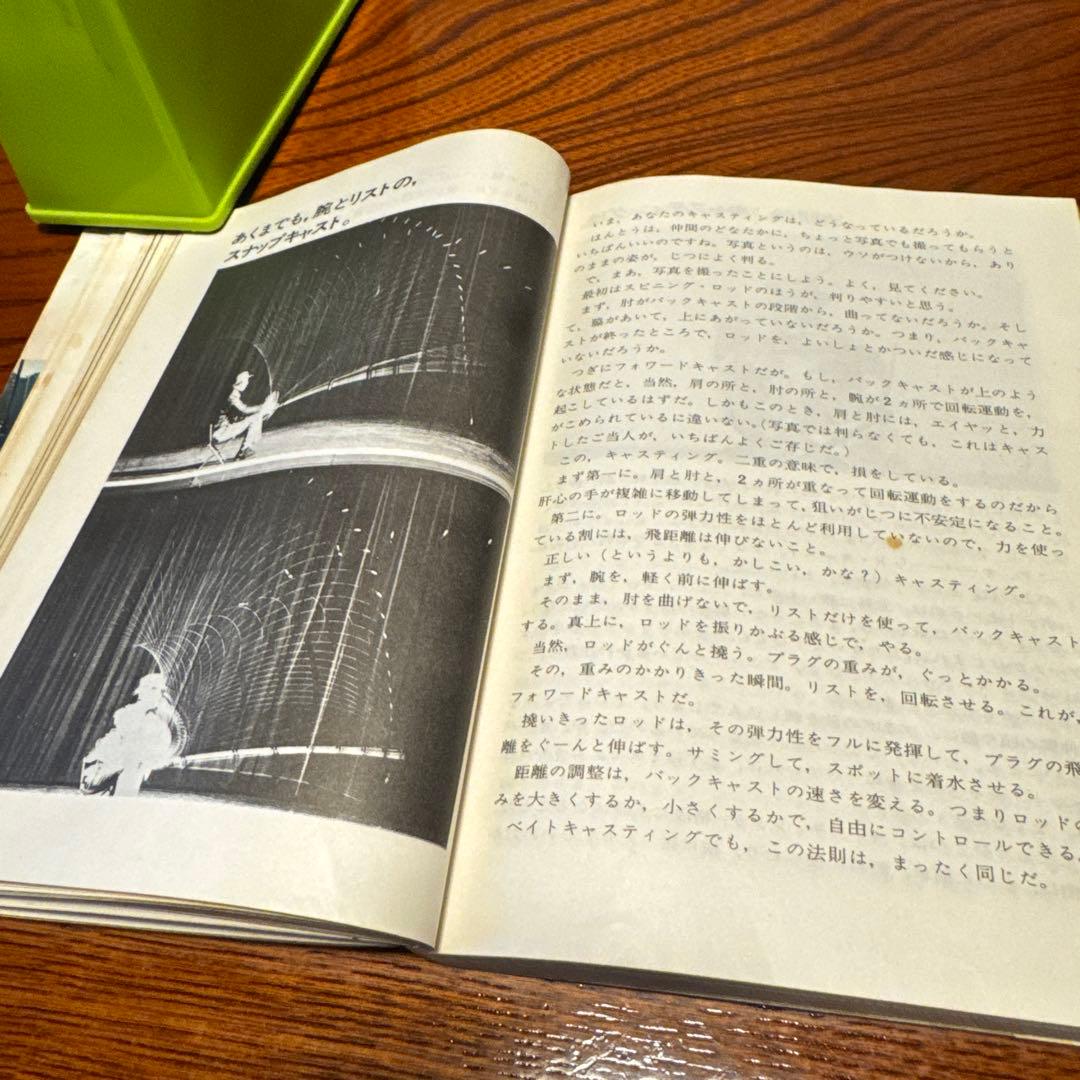 あくまでも，腕とリストの，
スナップキャスト。
いま，あなたのキャスティングは，どうなっているだろうか。
ほんとうは，仲間のどなたかに，ちょっと写真でも撮ってもらうと
いちばんいいのですね。写真というのは，ウソがつけないから，あり
のままの姿が，じつによく判る。
で，まあ，写真を撮ったことにしよう。よく，見てください。
最初はスピニング・ロッドのほうが，判りやすいと思う。
まず，肘がバックキャストの段階から，曲ってないだろうか。そし
て，脇があいて，上にあがっていないだろうか。つまり，バックキャ
ストが終ったところで，ロッドを，よいしょとかついだ感じになって
いないだろうか。
つぎにフォワードキャストだが。もし，バックキャストが上のよう
な状態だと，当然，肩の所と，肘の所と，腕が２ヵ所で回転運動を，
起こしているはずだ。しかもこのとき，肩と肘には，エイヤッと，力
がこめられているに違いない。（写真では判らなくても，これはキャス
トしたご当人が，いちばんよくご存じだ。）
この，キャスティング。二重の意味で，損をしている。
まず第一に。肩と肘と，２ヵ所が重なって回転運動をするのだから
肝心の手が複雑に移動してしまって，狙いがじつに不安定になること。
第二に。ロッドの弾力性をほとんど利用していないので，力を使っ
ている割には，飛距離は伸びないこと。
正しい（というよりも，かしこい，かな？）キャスティング。
まず，腕を，軽く前に伸ばす。
そのまま，肘を曲げないで，リストだけを使って，バックキャスト
する。真上に，ロッドを振りかぶる感じで，やる。
当然，ロッドがぐんと撓う。プラグの重みが，ぐっとかかる。
その，重みのかかりきった瞬間。リストを，回転させる。これが
フォワードキャストだ。
撓いきったロッドは，その弾力性をフルに発揮して，プラグの飛
離をぐーんと伸ばす。サミングして，スポットに着水させる。
距離の調整は，バックキャストの速さを変える。つまりロッドの
みを大きくするか，小さくするかで，自由にコントロールできる。
ベイトキャスティングでも，この法則は，まったく同じだ。